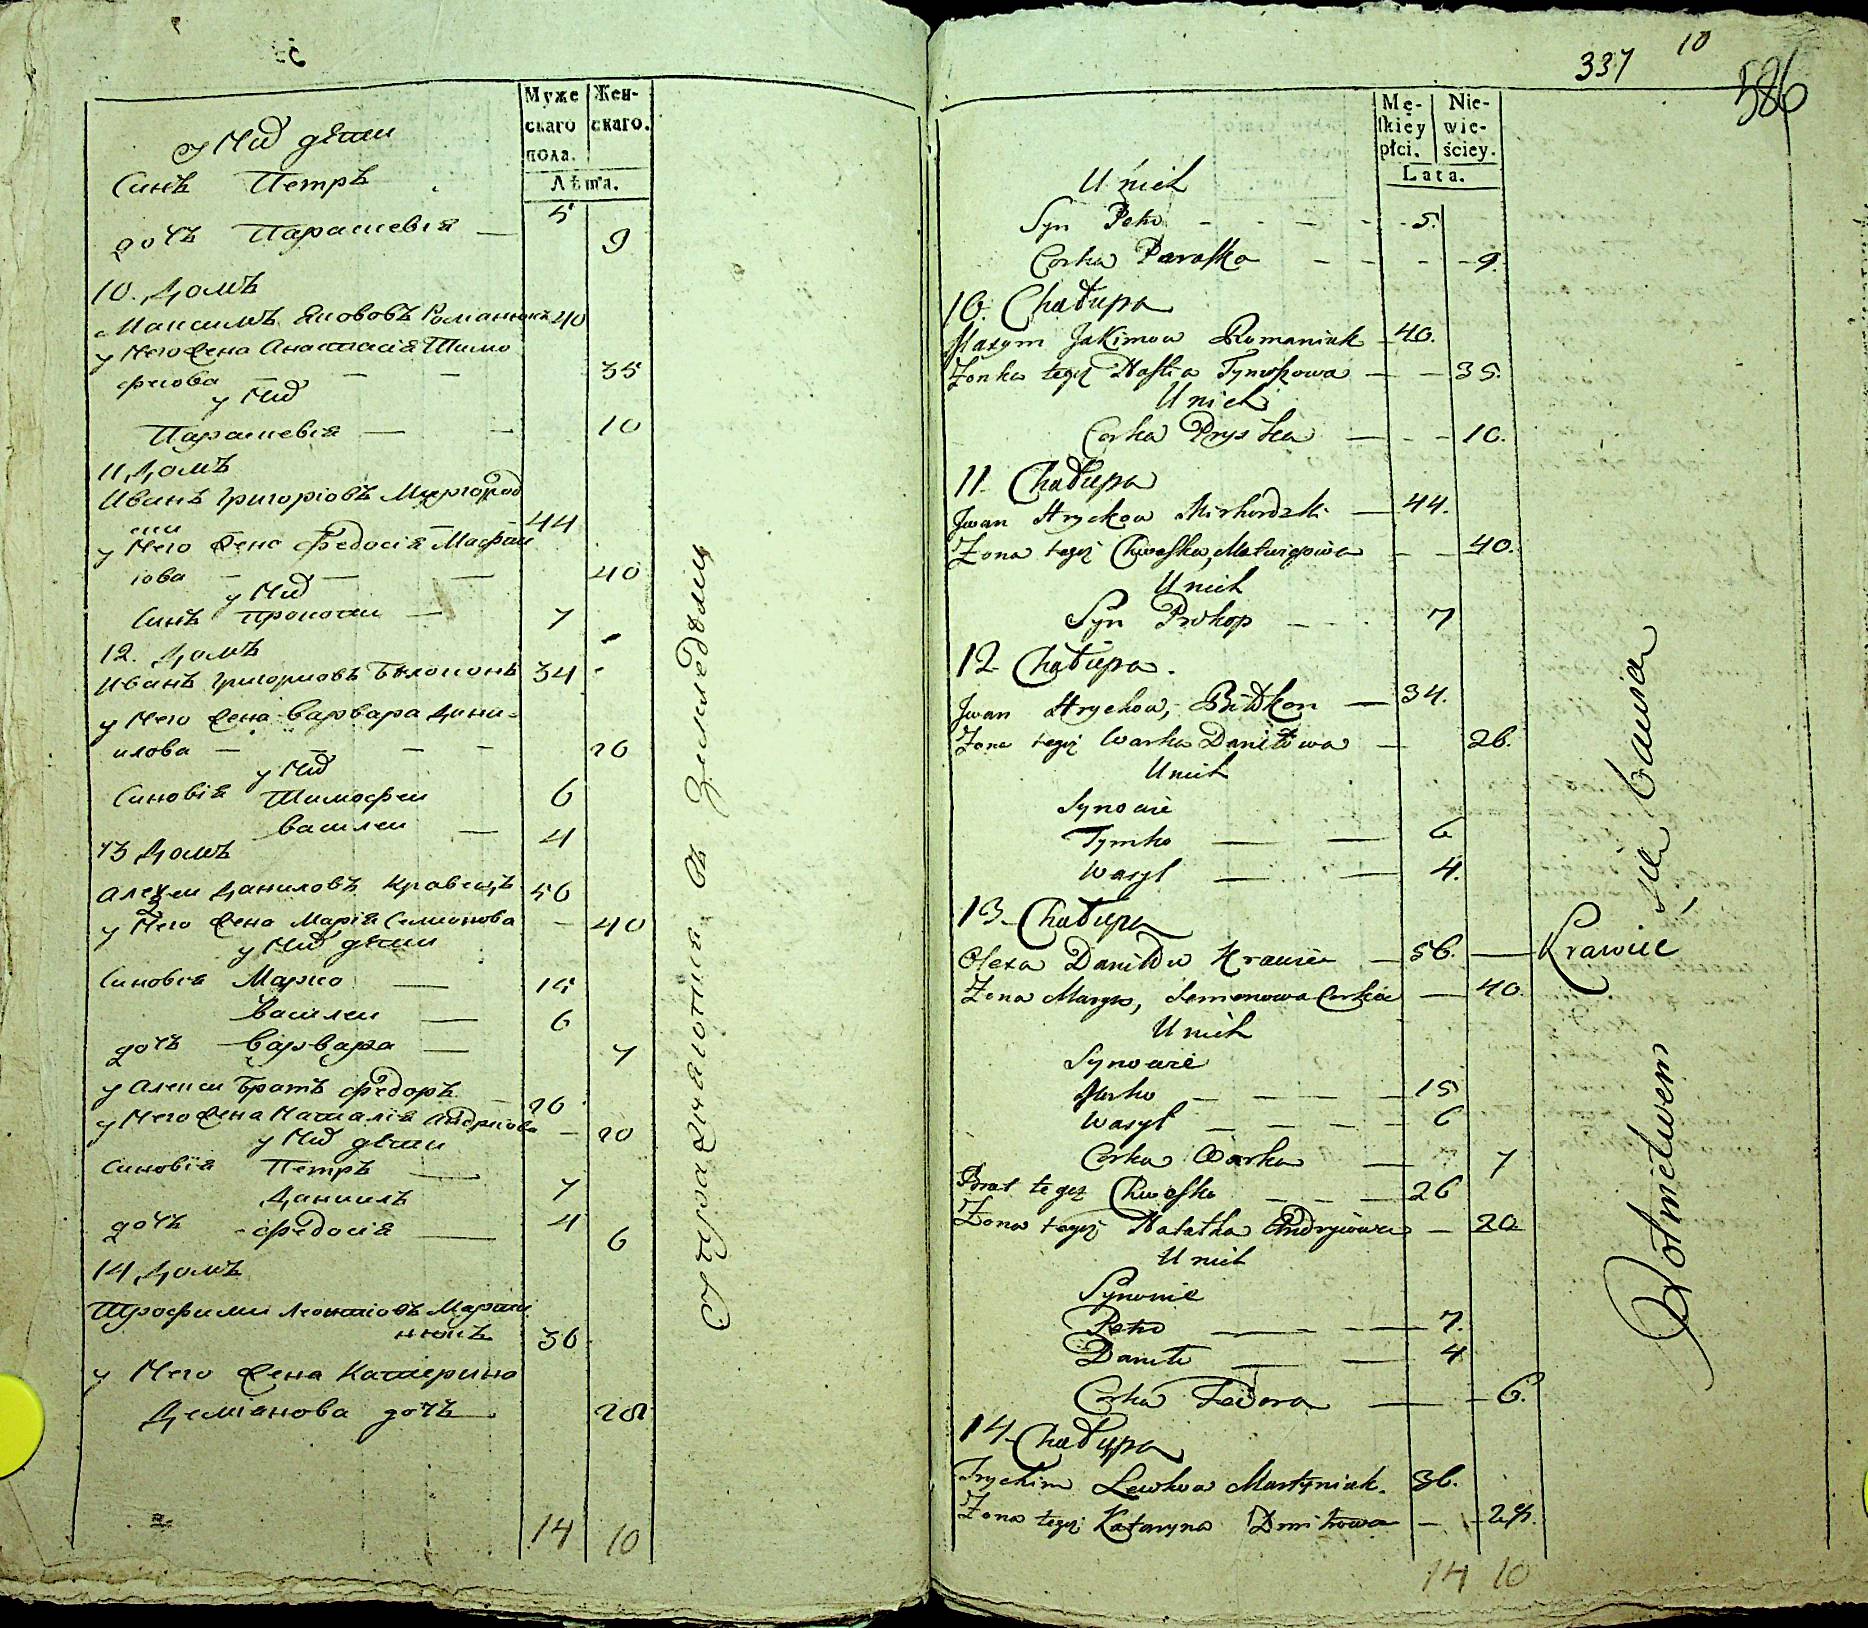 Муже
скаго
пола.
Жен-
скаго.
Лѣта.
у Них дѣти
Синъ Петръ 5
дочъ Парасиевія — 9
10. Домъ
Максимъ Романюкъ 40
у Него жена Анастасія Тимо
фиова — — — 35
у Них
Парасиевія — — 10
11 Домъ
Иванъ Григоріовъ Миргород
ски 44
у Него жена Федосія
іова — — — 40
у Них
Синъ Прокопи — 7
12. Домъ
Иванъ Григориовъ Бѣлоконь 34
у Него жена Варвара Дани-
илова — — — — 26
у Них
Синовія Тимофеи 6
Василеи — 4
13 Домъ
Алексеи Даниловъ Кравецъ 56
у Него жена Марія Семионова — 40
у Них дѣти
Синовія Марко — 15
Василеи — 6
дочъ Варвара — 7
у Алекси Братъ Федоръ — 26
у Него жена Наталія Андриова — 20
у Них дѣти
Синовія Петръ — 7
Даниилъ 4
дочъ Федосія — 6
14 Домъ
Трофими Леонтіовъ Марти
нюкъ 36
у Него жена Катерина
Деміанова дочъ — 28
14 10
въ Земледѣлиц
337 10
586
Mę-
skiey
płci.
Nie-
wie-
ściey.
Lata.
U nich
Syn Petro - - - - 5.
Corka Paraska - - - - 9.
10. Chałupa
Maxym Jakimow Romaniuk - 40.
Żonka tegoż Nastia Tymoszowa — — 35.
U nich
Corka Pryska — - - 10.
11. Chałupa
Jwan Hryckow Mirhordzki — 44.
Żona tegoż Chweska, Matwiejowa - — 40.
U nich
Syn Prokop - - - 7
12 Chałupa.
Jwan Hryckow, Biłokon — 34.
Żona tegoż Warka Daniłowa — 26.
U nich
Synowie
Tymko — — 6
Wasyl — — 4.
13. Chałupa
Olexa Daniłow Krawiec — 56. — Krawiec
Żona Marya, Semenowa Corka — 40.
U nich
Synowie
Marko — - - - 15
Wasyl — - - - 6
Corka Warka — 7
Brat tegoż Chwesko - - - 26
Żona tegoż Natałka Andryiowa — 20
U nich
Synowie
Petro — - — 7.
Daniło — — 4
Corka Fedora — - 6.
14. Chałupa
Trychim Lewkow Martyniuk. 36.
Żona tegoż Kataryna Dmitrowa — - 28.
14 10
Rolnictwem się bawia